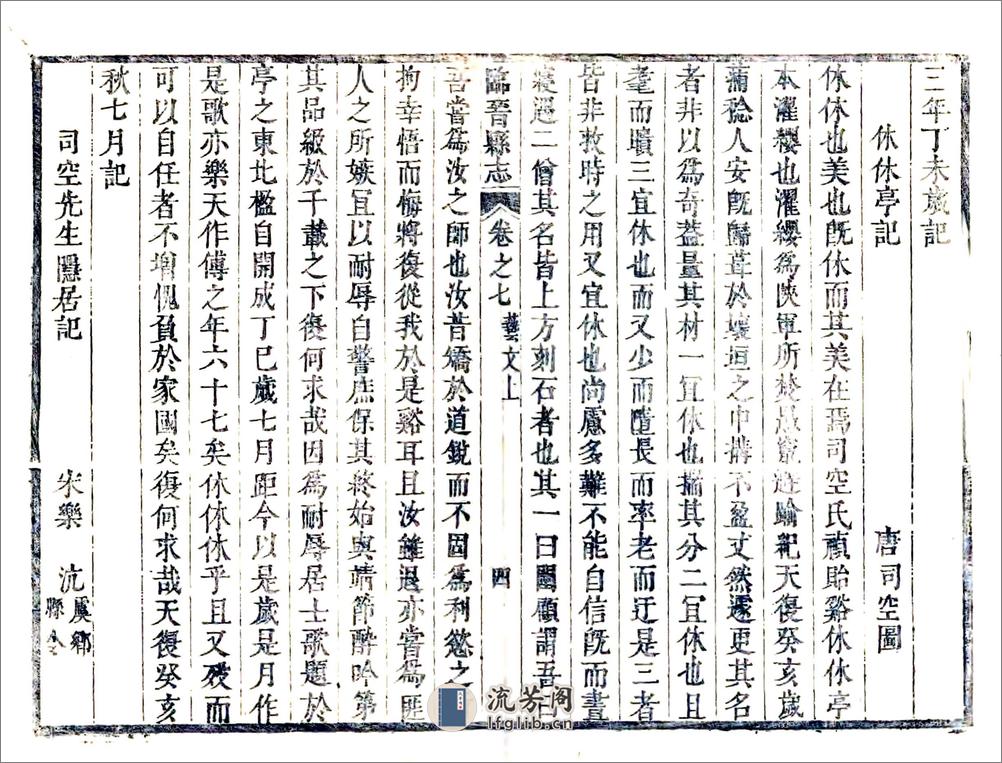 三年丁未歲記
休休亭記 唐司空圖
休休也美也旣休而其美在焉司空氏禎貽谿休休亭
本濯纓也濯纓爲陝軍所焚愚竄避踰紀天復癸亥歲
蒲稔人安旣歸葺於壞垣之中搆不盈丈然遽更其名
者非以爲奇蓋量其材一宜休也揣其分二宜休也且
耄而聵三宜休也而又少而惰長而率老而迂是三者
皆非救時之用又宜休也尚慮多難不能自信旣而晝
寢遇二僧其名皆上方刻石者也其一曰 顧謂吾曰
臨晉縣志 卷之七 藝文上 四
吾嘗爲汝之師也汝昔矯於道銳而不固爲利慾之
拘幸悟而悔將復從我於是谿耳且汝雖退亦嘗爲匪
人之所嫉宜以耐辱自警庶保其終始與靖節醉吟第
其品級於千載之下復何求哉因爲耐辱居士歌題於
亭之東北楹自開成丁巳歲七月距今以是歲是月作
是歌亦樂天作傳之年六十七矣休休乎且又歿而
可以自任者不增愧負於家國矣復何求哉天復癸亥
秋七月記
司空先生隱居記 宋樂沆 虞鄉縣令
流芳阁
lfglib.cn